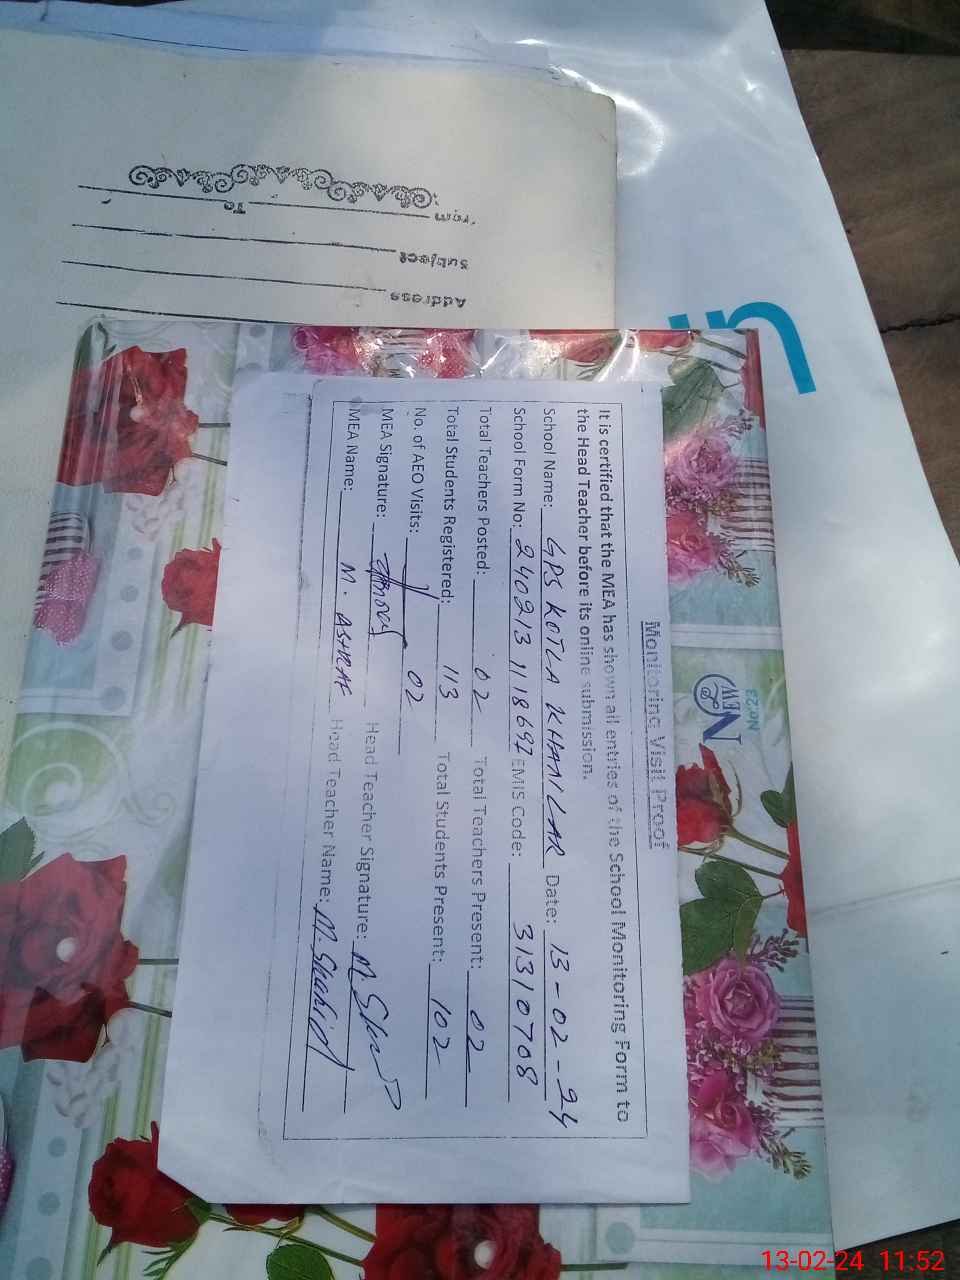 Monitoring Visit Proof
It is certified that the MEA has shown all entries of the School Monitoring Form to
the Head Teacher before its online submission.
School Name: GPS KOTLA KHANJLAR Date: 13-02-24
School Form No: 240213 1118697 EMIS Code: 31310708
Total Teachers Posted: 02 Total Teachers Present: 02
Total Students Registered: 113 Total Students Present: 102
No. of AEO Visits: 02
MEA Signature: Head Teacher Signature: M. Sha
MEA Name: M. ASHRAF Head Teacher Name: M. Shahid
From
To
Subject
Address
NEW
No.23
13-02-24 11:52